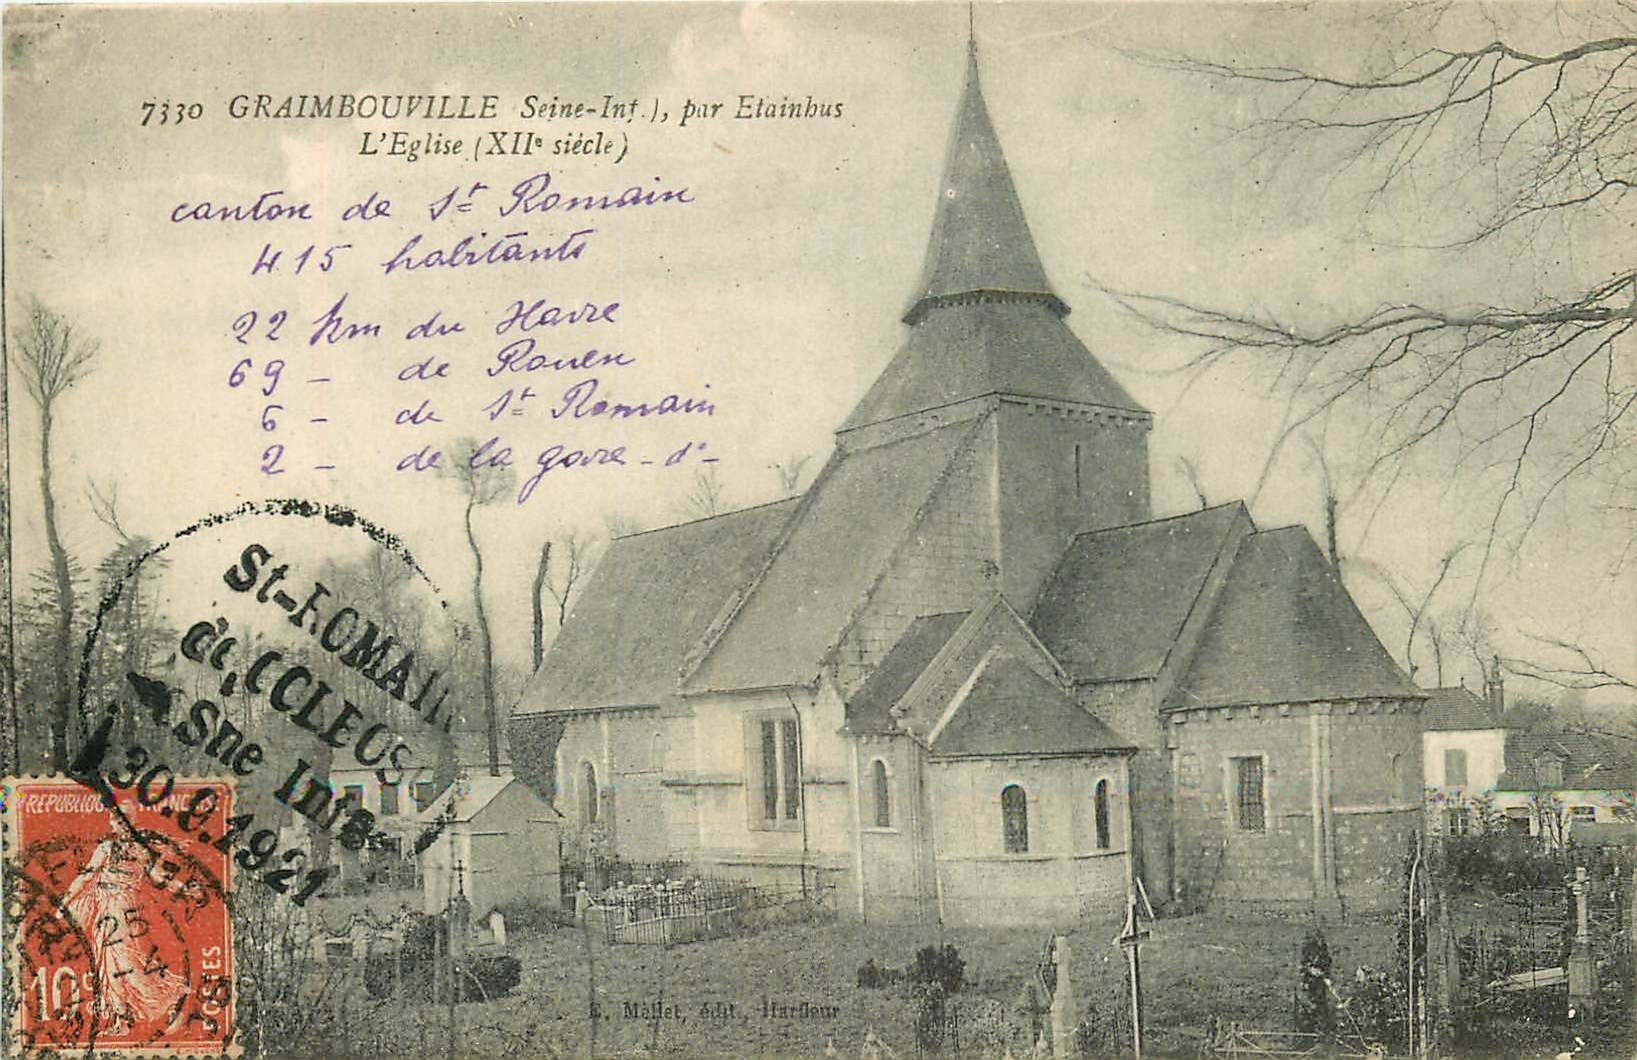 7330 GRAIMBOUVILLE Seine-Inf.), par Etainhus
L'Eglise (XIIe siècle)
canton de St Romain
415 habitants
22 km du Havre
69 - de Rouen
6 - de St Romain
2 - de la gare - do -
St-ROMAIN
de COLBOSC
Sne Infre
30.9.1921
REPUBLIQUE FRANÇAISE
25
10c
POSTES
E. Mellet, édit., Harfleur